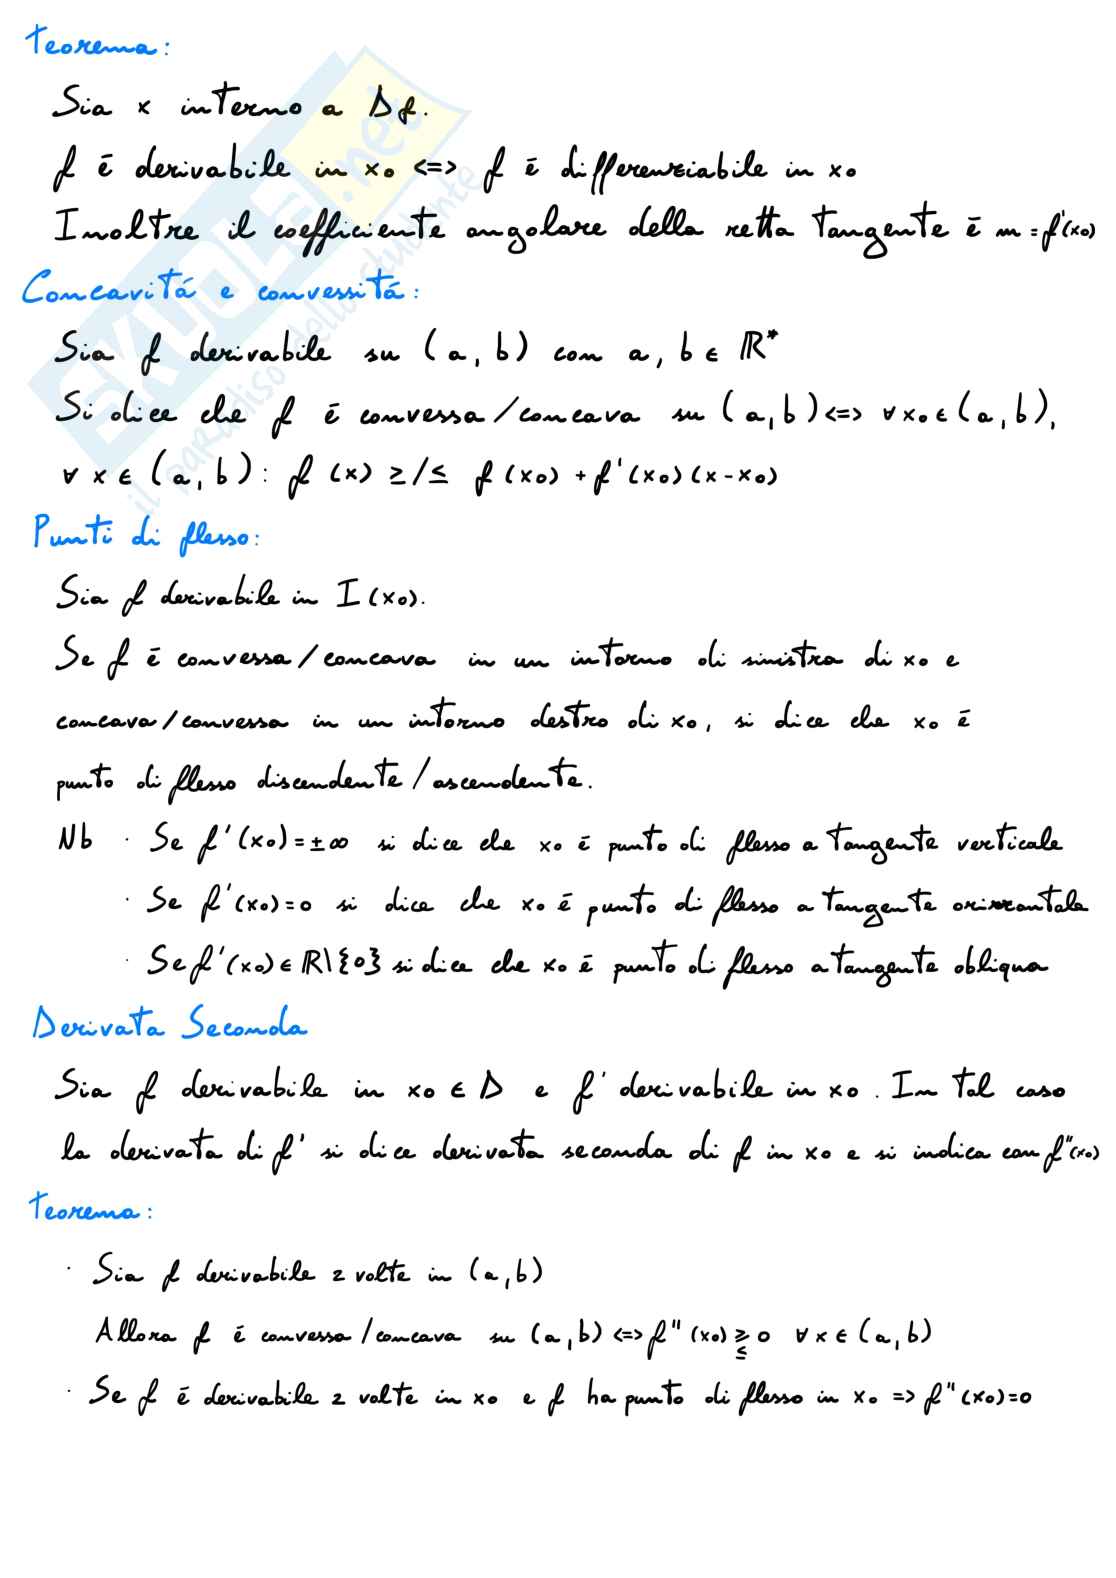 Teorema:
Sia x interno a Df.
f é derivabile in x₀ <=> f é differenziabile in x₀
Inoltre il coefficiente angolare della retta tangente é m = f'(x₀)
Concavitá e convessitá:
Sia f derivabile su (a, b) con a, b ∈ ℝ*
Si dice che f é convessa/concava su (a, b) <=> ∀ x₀ ∈ (a, b),
∀ x ∈ (a, b): f (x) ≥/≤ f (x₀) + f'(x₀)(x-x₀)
Punti di flesso:
Sia f derivabile in I(x₀).
Se f é convessa/concava in un intorno di sinistra di x₀ e
concava/convessa in un intorno destro di x₀, si dice che x₀ é
punto di flesso discendente/ascendente.
Nb · Se f'(x₀)=±∞ si dice che x₀ é punto di flesso a tangente verticale
· Se f'(x₀)=0 si dice che x₀ é punto di flesso a tangente orizzontale
· Se f'(x₀) ∈ ℝ\{0} si dice che x₀ é punto di flesso a tangente obliqua
Derivata Seconda
Sia f derivabile in x₀ ∈ D e f' derivabile in x₀. In tal caso
la derivata di f' si dice derivata seconda di f in x₀ e si indica con f"(x₀)
Teorema:
· Sia f derivabile 2 volte in (a, b)
Allora f é convessa/concava su (a, b) <=> f"(x₀) ≥/≤ 0 ∀ x ∈ (a, b)
· Se f é derivabile 2 volte in x₀ e f ha punto di flesso in x₀ => f"(x₀)=0
SKUOLA.net
il paradiso dello studente